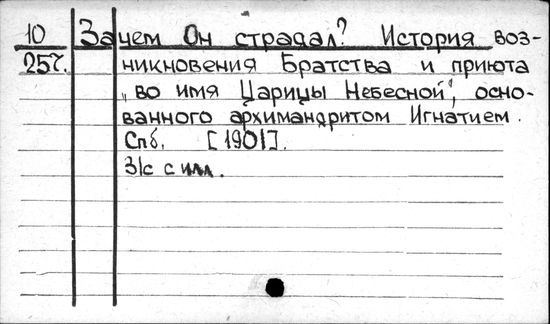 10 Зачем Он страдал? История воз-
257. никновения Братства и приюта
„во имя Царицы Небесной", осно-
ванного архимандритом Игнатием.
Спб. [1901].
31с с илл.